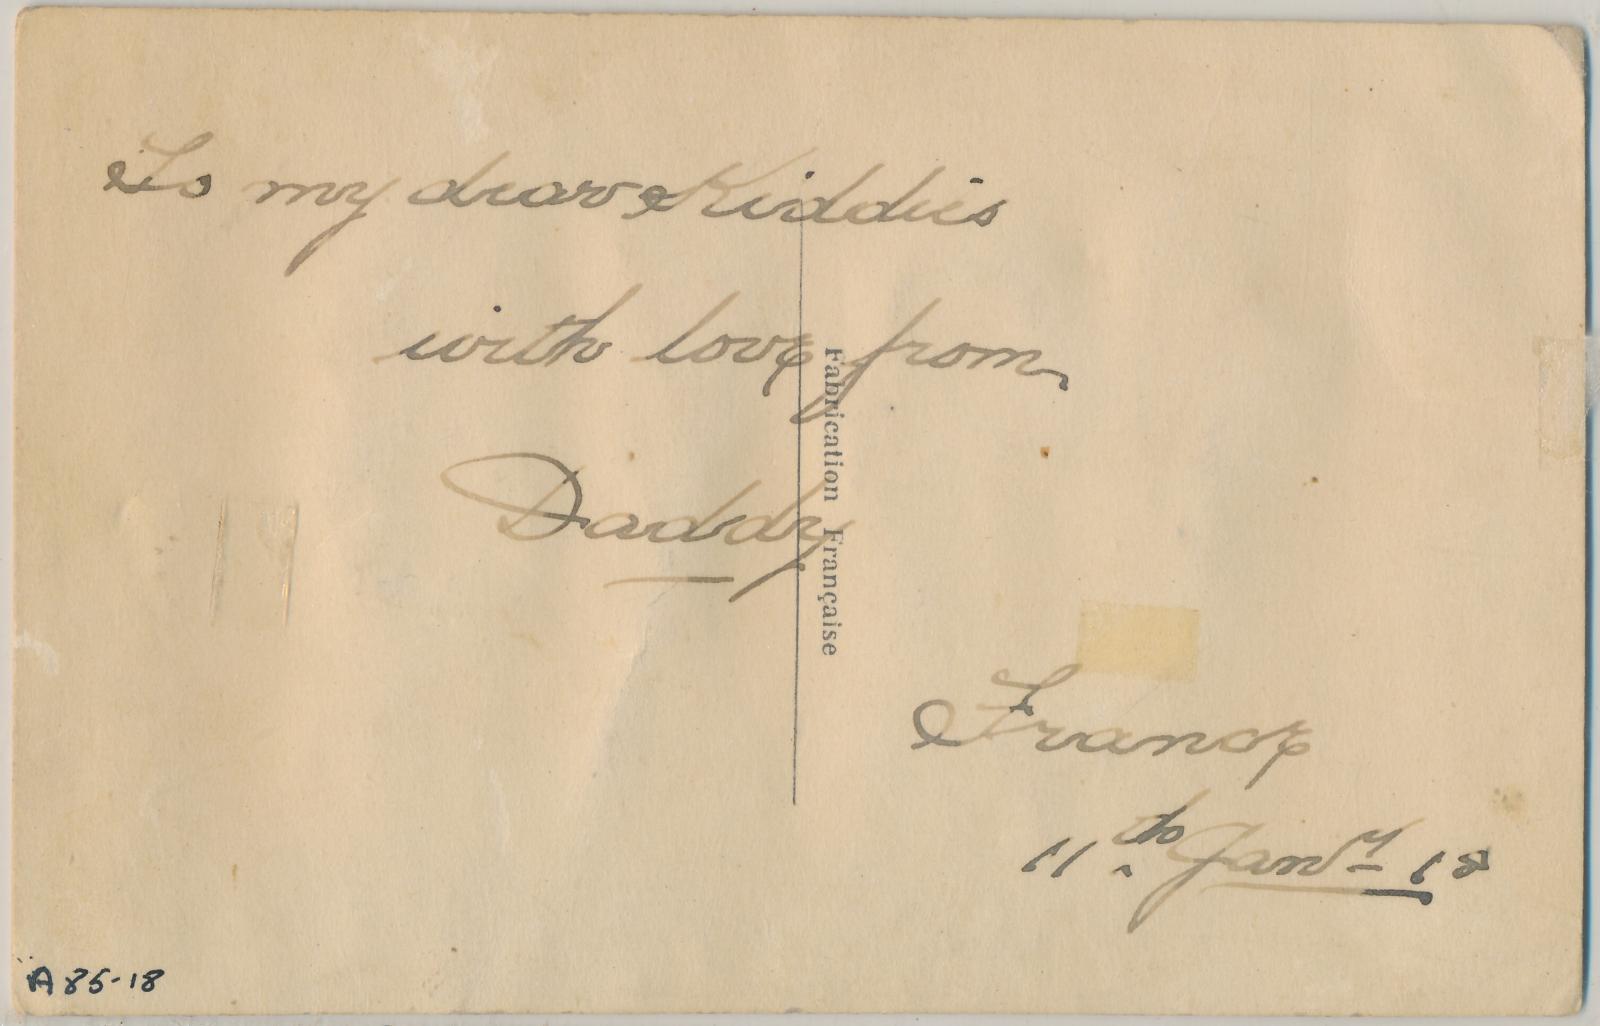 To my dear Kiddies
with love from
Daddy
Fabrication Française
France
11th Jany 18
A85-18